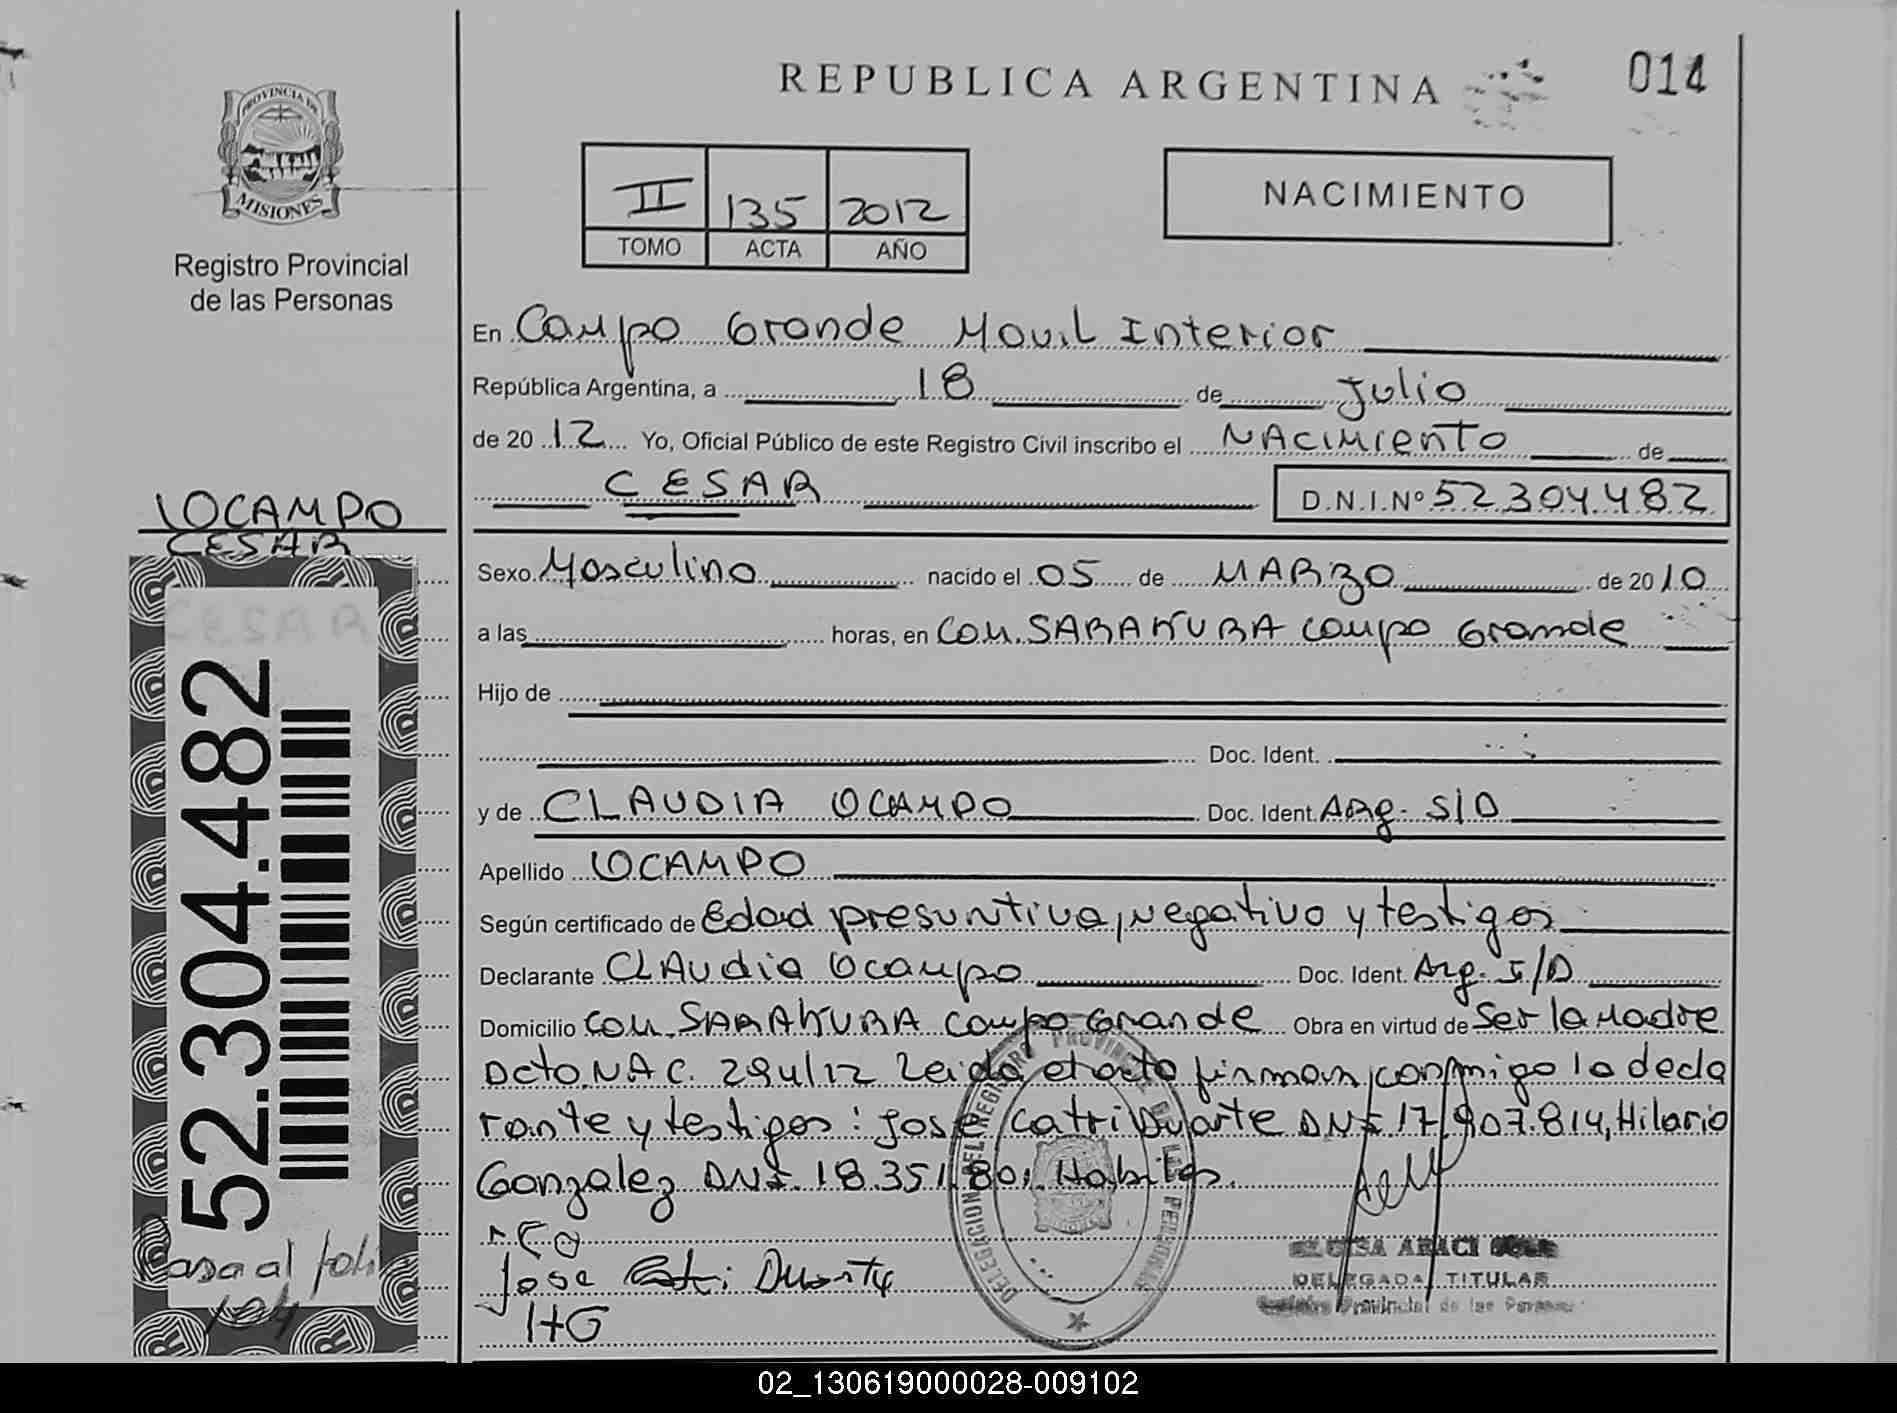 REPUBLICA ARGENTINA
014
PROVINCIA DE
MISIONES
Registro Provincial
de las Personas
II 135 2012
TOMO ACTA AÑO
NACIMIENTO
En Campo Grande Movil Interior
República Argentina, a 18 de Julio
de 2012 Yo, Oficial Público de este Registro Civil inscribo el NACIMIENTO de
CESAR D.N.I.Nº 52.304.482
OCAMPO
CESAR
Sexo Masculino nacido el 05 de MARZO de 2010
a las horas, en Com. SARAKURA Campo Grande
Hijo de
Doc. Ident.
y de CLAUDIA OCAMPO Doc. Ident. Arg. S/D
Apellido OCAMPO
Según certificado de Edad presuntiva, negativo y testigos
Declarante CLAudia Ocampo Doc. Ident. Arg. I/D
Domicilio Com. SARAKURA Campo Grande Obra en virtud de Ser la Madre
Dcto. NAC. 294/12 Leida el acta firman conmigo la decla
rante y testigos: Jose Catri Duarte DNI 17.907.814, Hilario
Gonzalez DNI. 18.351.801 Habiles.
Jose Catri Duarte
HG
CESAR
52.304.482
Pasa al folio
104
DELEGACION DEL REGISTRO PROVINCIAL DE LAS PERSONAS
ARACI
DELEGADA TITULAR
Registro Provincial de las Personas
02_130619000028-009102